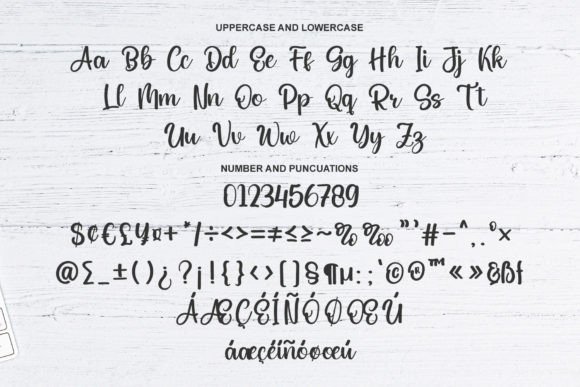 UPPERCASE AND LOWERCASE
Aa Bb Cc Dd Ee Ff Gg Hh Ii Jj Kk
Ll Mm Nn Oo Pp Qq Rr Ss Tt
Uu Vv Ww Xx Yy Zz
NUMBER AND PUNCUATIONS
0123456789
$¢€£¥¤+*/÷<>=≠≤≥~%‰"'#-^,.°×
@∑_±()¿?¡!{}<>[]§¶µ:;'©®™«»&ßƒ
ÁÆÇÉÍÑÓØŒÚ
áæçéíñóøœú